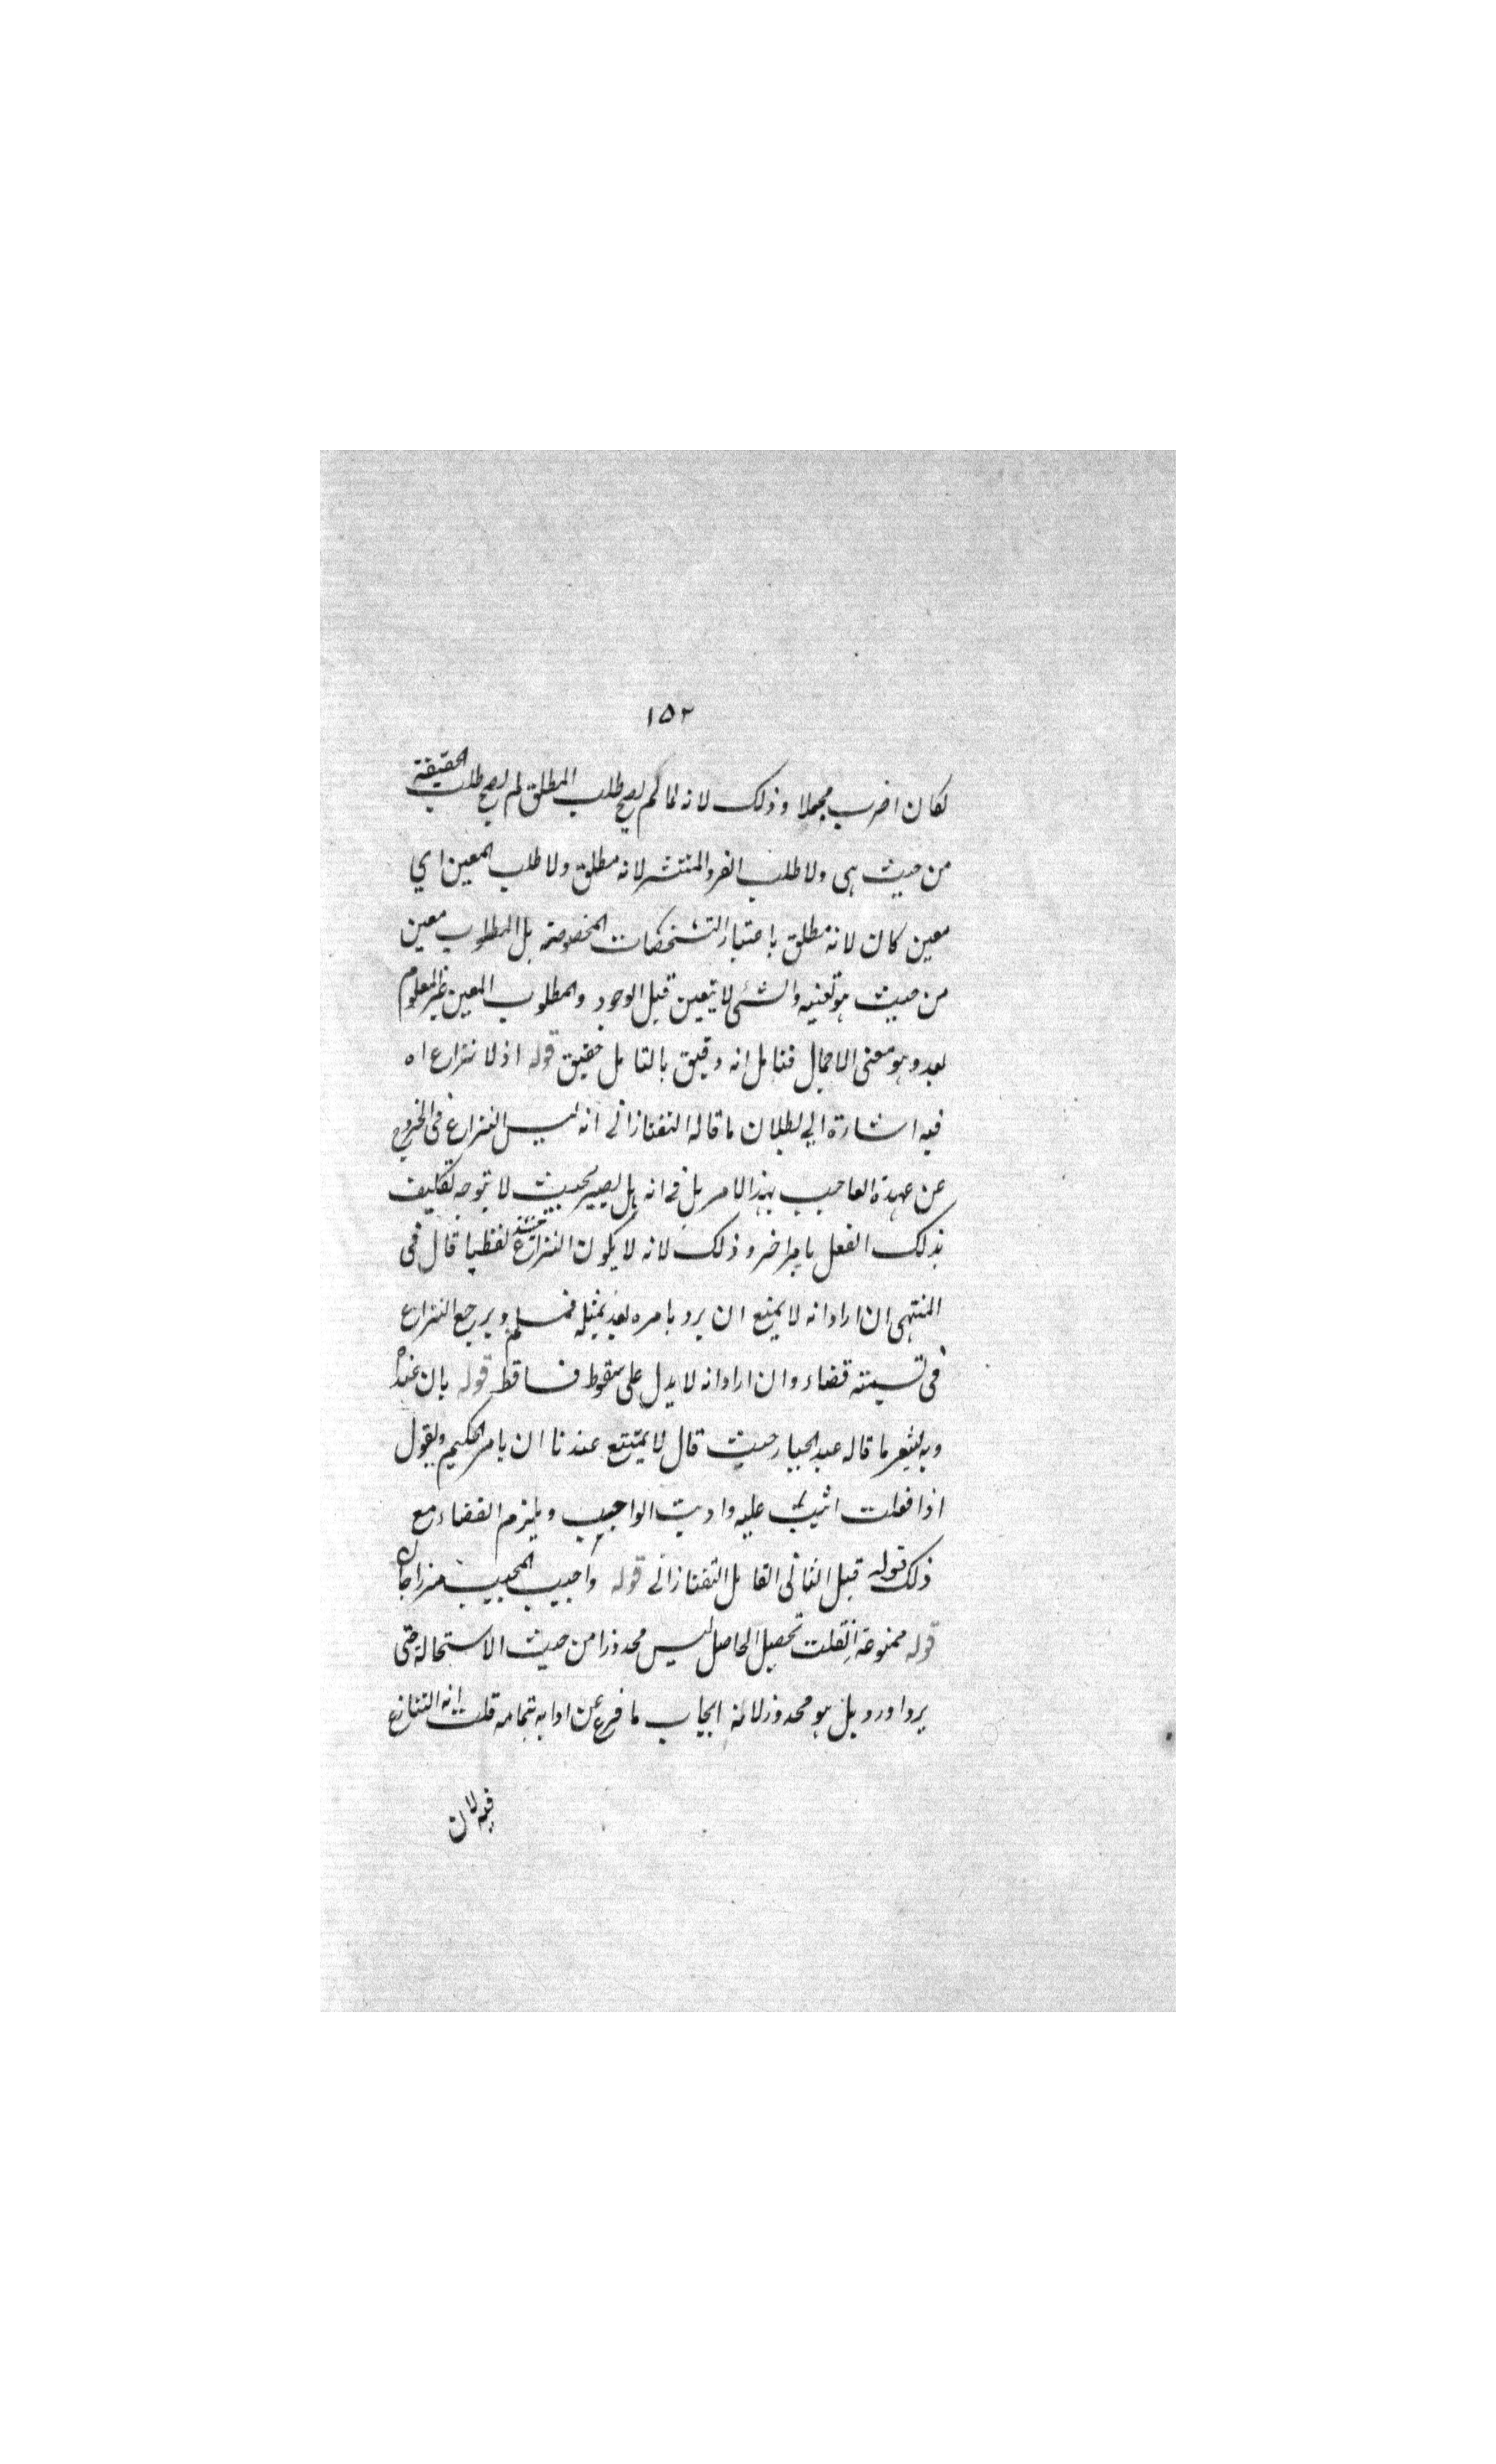 ١٥٢
لكان اضرب مجملا وذلك لانه لما لم يصح طلب المطلق لم يصح طلب الحقيقة
من حيث هى ولا طلب الفرد المنتشر لانه مطلق ولا طلب المعين اي
معين كان لانه مطلق باعتبار التشخصات المخصوصة بل المطلوب معين
من حيث هو تعينه والشئ لا يتعين قبل الوجود والمطلوب المعين غير المعلوم
بعد وهو معنى الاجمال فتامل انه دقيق بالتامل حقيق قوله اذ لا نزاع اه
فيه اشارة الي بطلان ما قاله التفتازانى انه ليس النزاع فى الخروج
عن عهدة الواجب بهذا الامر بل فى انه هل يصير بحيث لا يتوجه تكليف
بذلك الفعل بامر اخر وذلك لانه لا يكون النزاع حينئذ لفظيا قال فى
المنتهى ان اراد انه لا يمتنع ان يرد بامره بعد بمثله فمسلم ويرجع النزاع
فى تسميته قضاء وان اراد انه لا يدل على سقوط فساقط قوله بان عنده
وبه يشعر ما قاله عبد الجبار حيث قال لا يمتنع عندنا ان يامر الحكيم ويقول
اذا فعلت اثبت عليه واديت الواجب ويلزم القضاء مع
ذلك قوله قيل الثانى القائل التفتازانى قوله واجيب المجيب ميرزاجان
قوله ممنوعة ان قلت تحصيل الحاصل ليس محذورا من حيث الاستحالة حتى
يرد اورد بل هو محذور لانه ايجاب ما فرغ عن ادائه بتمامه قلت انه التنازع
فيه لان